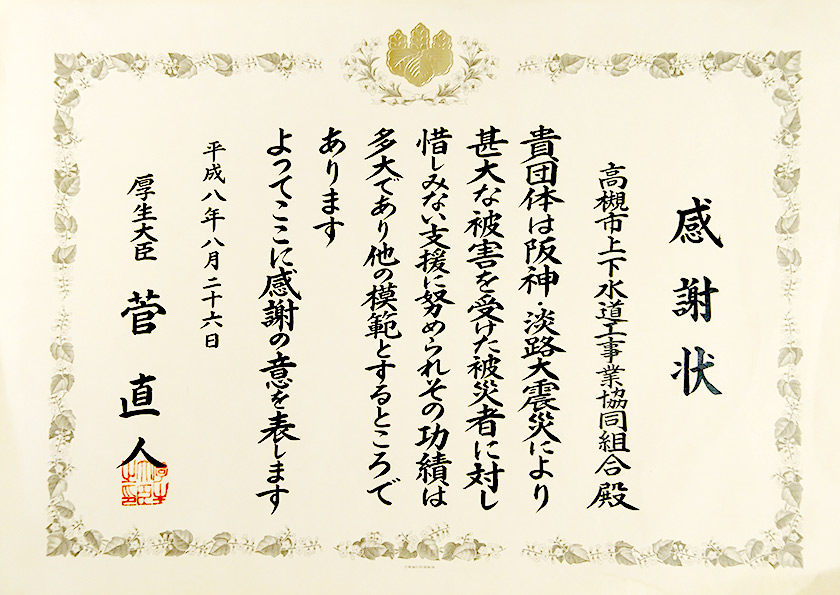 感謝状
高槻市上下水道工事業協同組合殿
貴団体は阪神・淡路大震災により
甚大な被害を受けた被災者に対し
惜しみない支援に努められその功績は
多大であり他の模範とするところで
あります
よってここに感謝の意を表します
平成八年八月二十六日
厚生大臣 菅直人